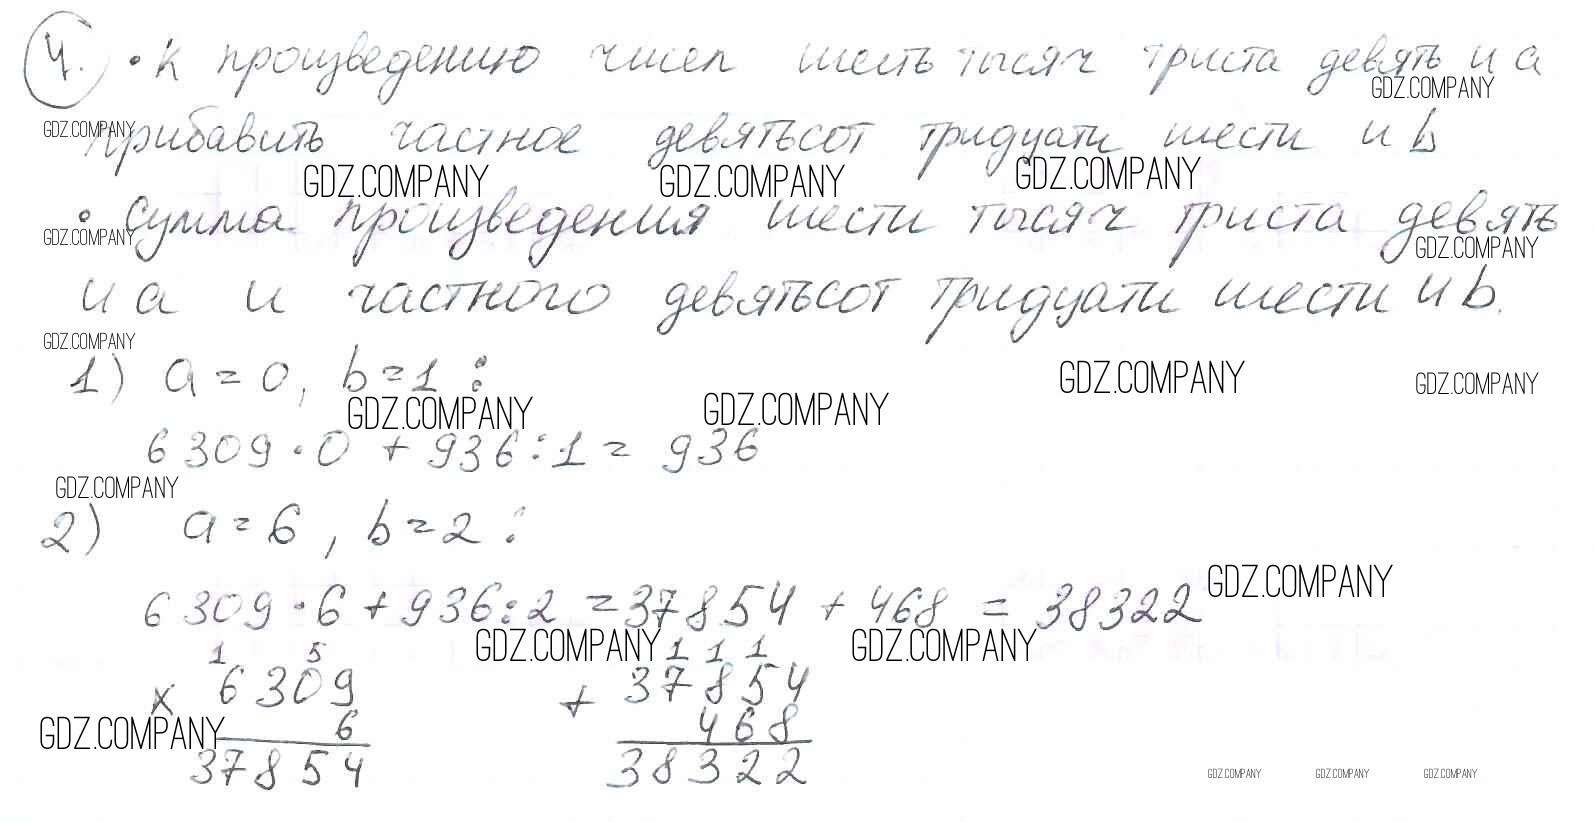 4. • К произведению чисел шесть тысяч триста девять и a
GDZ.COMPANY
GDZ.COMPANY
прибавить частное девятьсот тридцати шести и b
GDZ.COMPANY GDZ.COMPANY GDZ.COMPANY
• Сумма произведения шести тысяч триста девять
GDZ.COMPANY GDZ.COMPANY
и a и частного девятьсот тридцати шести и b.
GDZ.COMPANY
1) a = 0, b = 1 :
GDZ.COMPANY GDZ.COMPANY
GDZ.COMPANY GDZ.COMPANY
6309 · 0 + 936 : 1 = 936
GDZ.COMPANY
2) a = 6, b = 2 :
GDZ.COMPANY
6309 · 6 + 936 : 2 = 37854 + 468 = 38322
GDZ.COMPANY GDZ.COMPANY
1 5 1 1 1
× 6309 + 37854
6 468
GDZ.COMPANY
37854 38322
GDZ.COMPANY GDZ.COMPANY GDZ.COMPANY